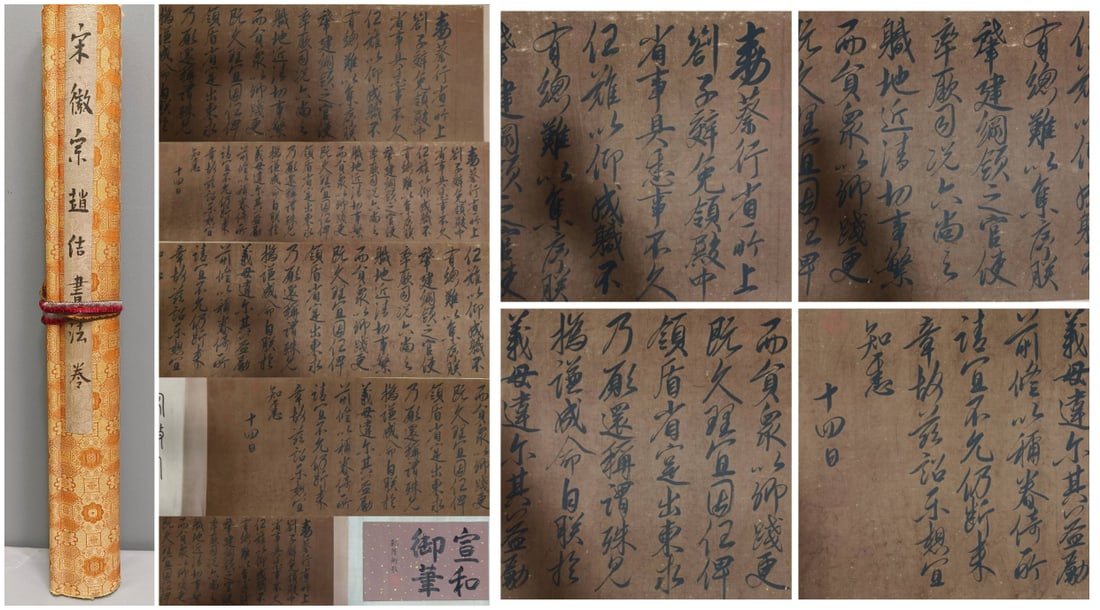 宋徽宗趙佶書法卷
敕蔡行省所上
劄子辭免領殿中
省事具悉事不久
任難以仰成職不
有總難以集序朕
肇建綱領之官使
率厥司况六尚之
職地近清切事繁
而貟衆以卿踐更
既久理宜因任俾
領盾省寔出柬求
乃願還稱謂殊見
撝謙成命自朕於
義毋違爾其益勵
前修以稱眷倚所
請宜不允仍斷來
章故茲詔示想宜
知悉
十四日
宣和
御筆